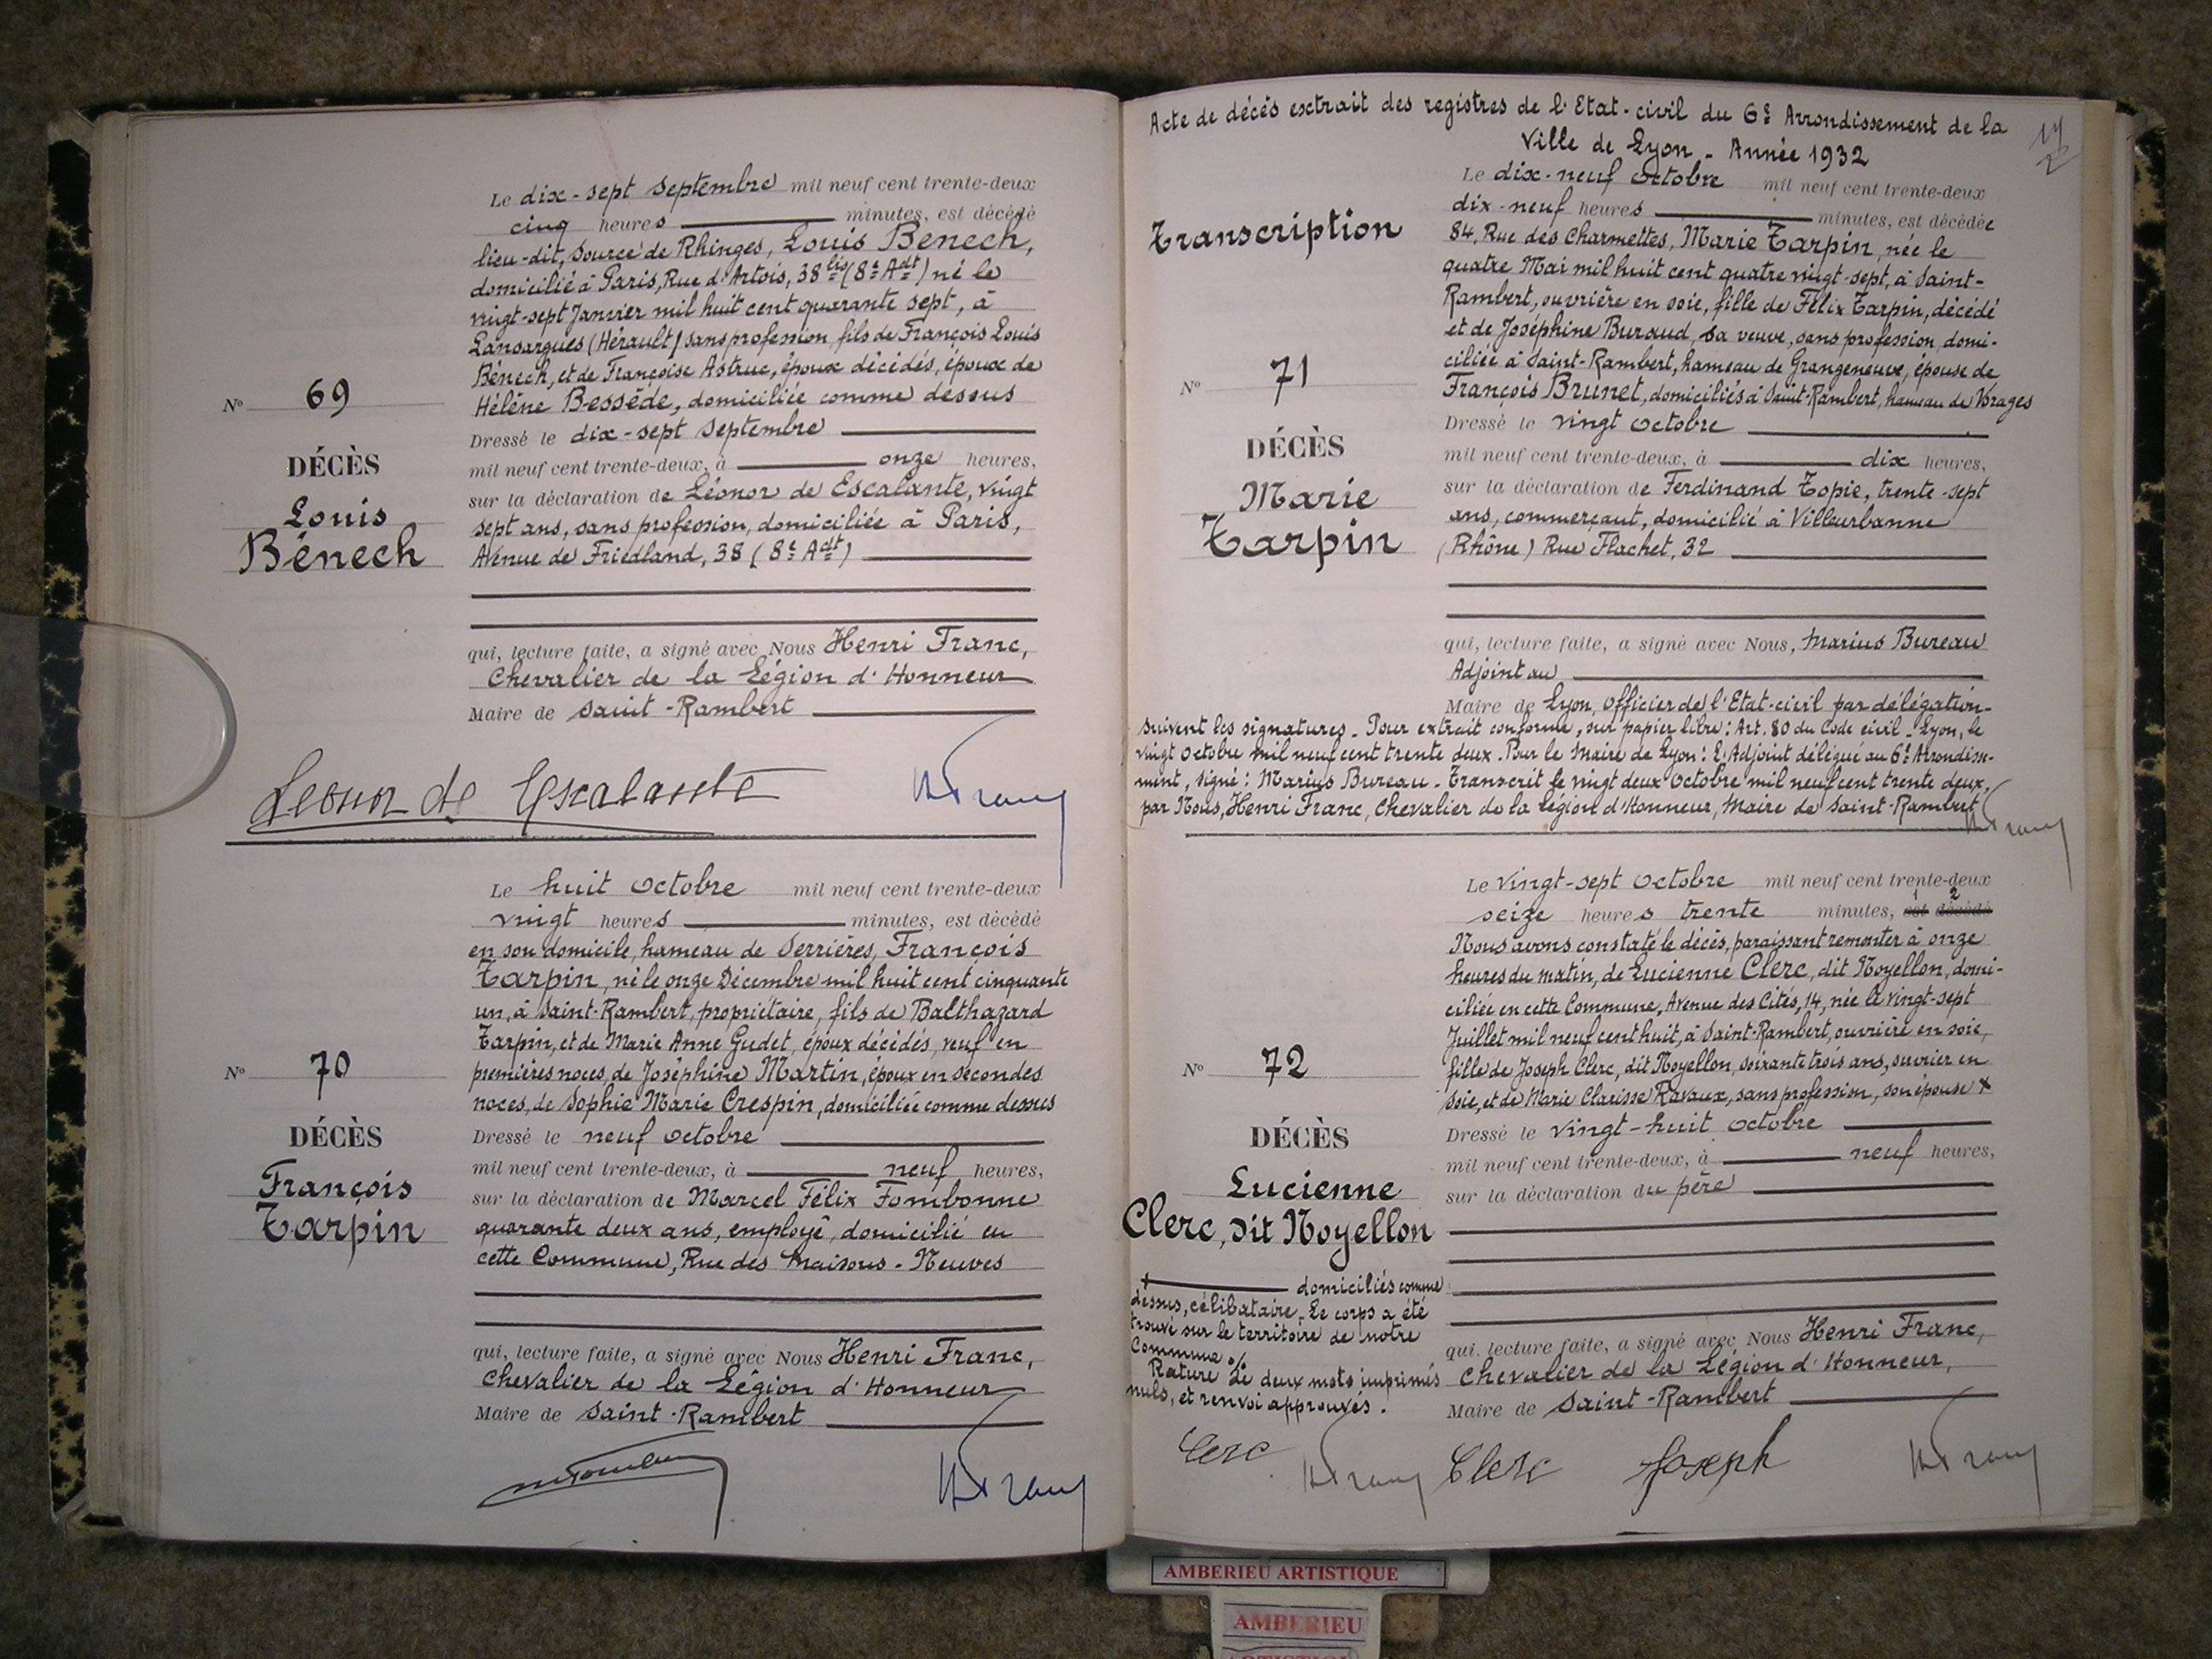 Le dix-sept Septembre mil neuf cent trente-deux
cinq heures minutes, est décédé
lieu-dit, Source de Rhinges, Louis Bénech,
domicilié à Paris, Rue d'Artois, 38 bis (8e Adt) né le
vingt-sept Janvier mil huit cent quarante sept, à
Lansargues (Hérault) sans profession, fils de François Louis
Bénech, et de Françoise Astruc, époux décédés, époux de
Hélène Bessède, domiciliée comme dessus
Nº 69
DÉCÈS
Louis
Bénech
Dressé le dix-sept Septembre
mil neuf cent trente-deux, à onze heures,
sur la déclaration de Léonor de Escalante, vingt
sept ans, sans profession, domiciliée à Paris,
Avenue de Friedland, 38 (8e Adt)
qui, lecture faite, a signé avec Nous Henri Franc,
Chevalier de la Légion d'Honneur
Maire de Saint-Rambert
Leonor de Escalante
HFranc
Le huit Octobre mil neuf cent trente-deux
vingt heures minutes, est décédé
en son domicile, hameau de Serrières, François
Tarpin, né le onze Décembre mil huit cent cinquante
un, à Saint-Rambert, propriétaire, fils de Balthazard
Tarpin, et de Marie Anne Gudet, époux décédés, veuf en
premières noces, de Joséphine Martin, époux en secondes
noces, de Sophie Marie Crespin, domiciliée comme dessus
Nº 70
DÉCÈS
François
Tarpin
Dressé le neuf Octobre
mil neuf cent trente-deux, à neuf heures,
sur la déclaration de Marcel Félix Fombonne
quarante deux ans, employé, domicilié en
cette Commune, Rue des Maisons-Neuves
qui, lecture faite, a signé avec Nous Henri Franc,
Chevalier de la Légion d'Honneur
Maire de Saint-Rambert
HFranc
Acte de décès extrait des registres de l'Etat-civil du 6e Arrondissement de la
Ville de Lyon - Année 1932
Transcription
Le dix-neuf Octobre mil neuf cent trente-deux
dix-neuf heures minutes, est décédée
84, Rue des Charmettes, Marie Tarpin, née le
quatre Mai mil huit cent quatre vingt-sept, à Saint-
Rambert, ouvrière en soie, fille de Félix Tarpin, décédé
et de Joséphine Buraud, sa veuve, sans profession, domi-
ciliée à Saint-Rambert, hameau de Grangeneuve, épouse de
François Brunet, domiciliés à Saint-Rambert, hameau de Vorages
Nº 71
DÉCÈS
Marie
Tarpin
Dressé le vingt Octobre
mil neuf cent trente-deux, à dix heures,
sur la déclaration de Ferdinand Topie, trente-sept
ans, commerçant, domicilié à Villeurbanne
(Rhône) Rue Flachet, 32
qui, lecture faite, a signé avec Nous, Marius Bureau
Adjoint au
Maire de Lyon, Officier de l'Etat-civil par délégation-
Suivent les signatures - Pour extrait conforme, sur papier libre: Art. 80 du Code civil - Lyon, le
vingt Octobre mil neuf cent trente deux. Pour le Maire de Lyon: L'Adjoint délégué au 6e Arrondisse-
ment, signé: Marius Bureau - Transcrit le vingt deux Octobre mil neuf cent trente deux,
par Nous, Henri Franc, Chevalier de la Légion d'Honneur, Maire de Saint-Rambert
HFranc
Le vingt-sept Octobre mil neuf cent trente-deux
seize heures trente minutes, est décédé
Nous avons constaté le décès, paraissant remonter à onze
heures du matin, de Lucienne Clerc, dit Noyellon, domi-
ciliée en cette Commune, Avenue des Cités, 14, née le vingt-sept
Juillet mil neuf cent huit, à Saint-Rambert, ouvrière en soie,
fille de Joseph Clerc, dit Noyellon, soixante trois ans, ouvrier en
soie, et de Marie Clarisse Ravaux, sans profession, son épouse x
Nº 72
DÉCÈS
Lucienne
Clerc, dit Noyellon
Dressé le vingt-huit Octobre
mil neuf cent trente-deux, à neuf heures,
sur la déclaration du père
x domiciliés comme
dessus, célibataire. Le corps a été
trouvé sur le territoire de notre
Commune
Rature de deux mots imprimés
nuls, et renvoi approuvés.
qui, lecture faite, a signé avec Nous Henri Franc,
Chevalier de la Légion d'Honneur,
Maire de Saint-Rambert
Clerc HFranc Clerc Joseph HFranc
AMBERIEU ARTISTIQUE
AMBERIEU
ARTISTIQUE